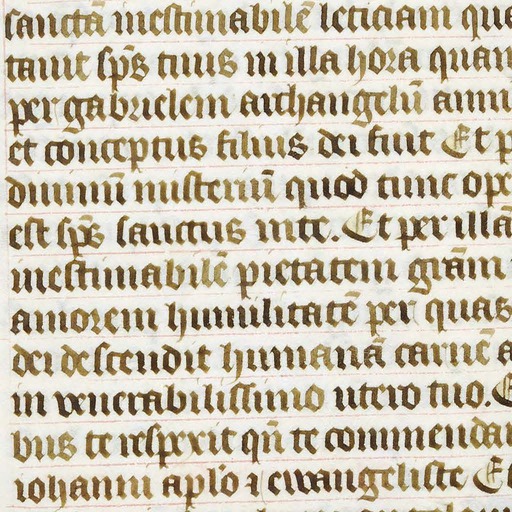 sanctā inestimabilē leticiam que
tauit sp̄s tuus in illa hora quan
per gabrielem archangelū annu
et conceptus filius dei fuit Et p
diuinū misteriū quod tunc ope
est sp̄s sanctus in te. Et per illā
inestimabilē pietatem grām
amorem humilitatē per quas
dei descendit humanā carnē a
in venerabilissimo utero tuo.
bus te respexit qn̄ te commendau
iohanni aplo ⁊ ewangeliste Et